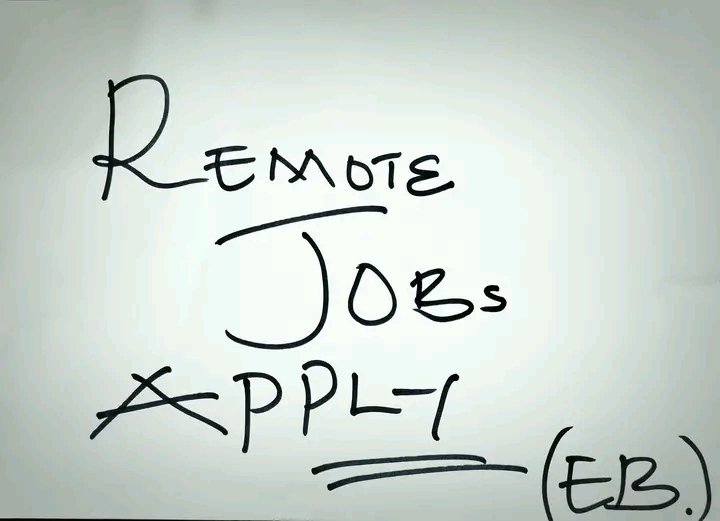 REMOTE
JOBS
APPLY
(EB.)